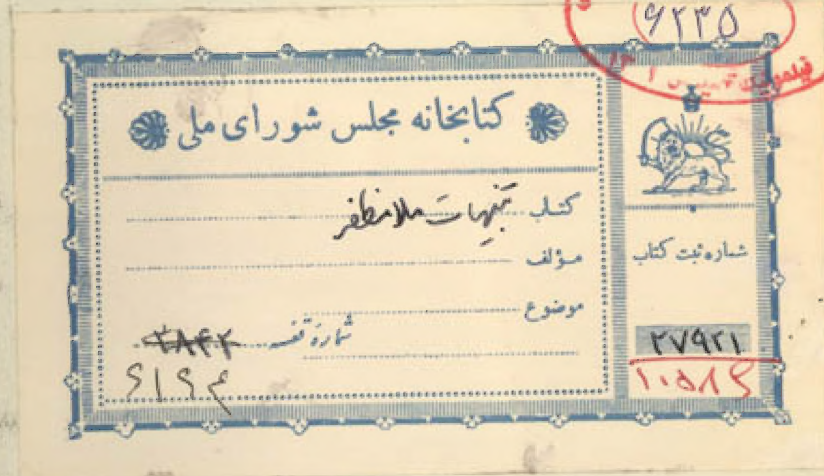 ۶۲۳۵
کتابخانه مجلس شورای ملی
کتاب تنبیهات ملا مظفر
مؤلف
موضوع
شماره قفسه ۳۸۴۲
۶۱۹۴
شماره ثبت کتاب
۲۷۹۲۱
۱۰۵۸۶